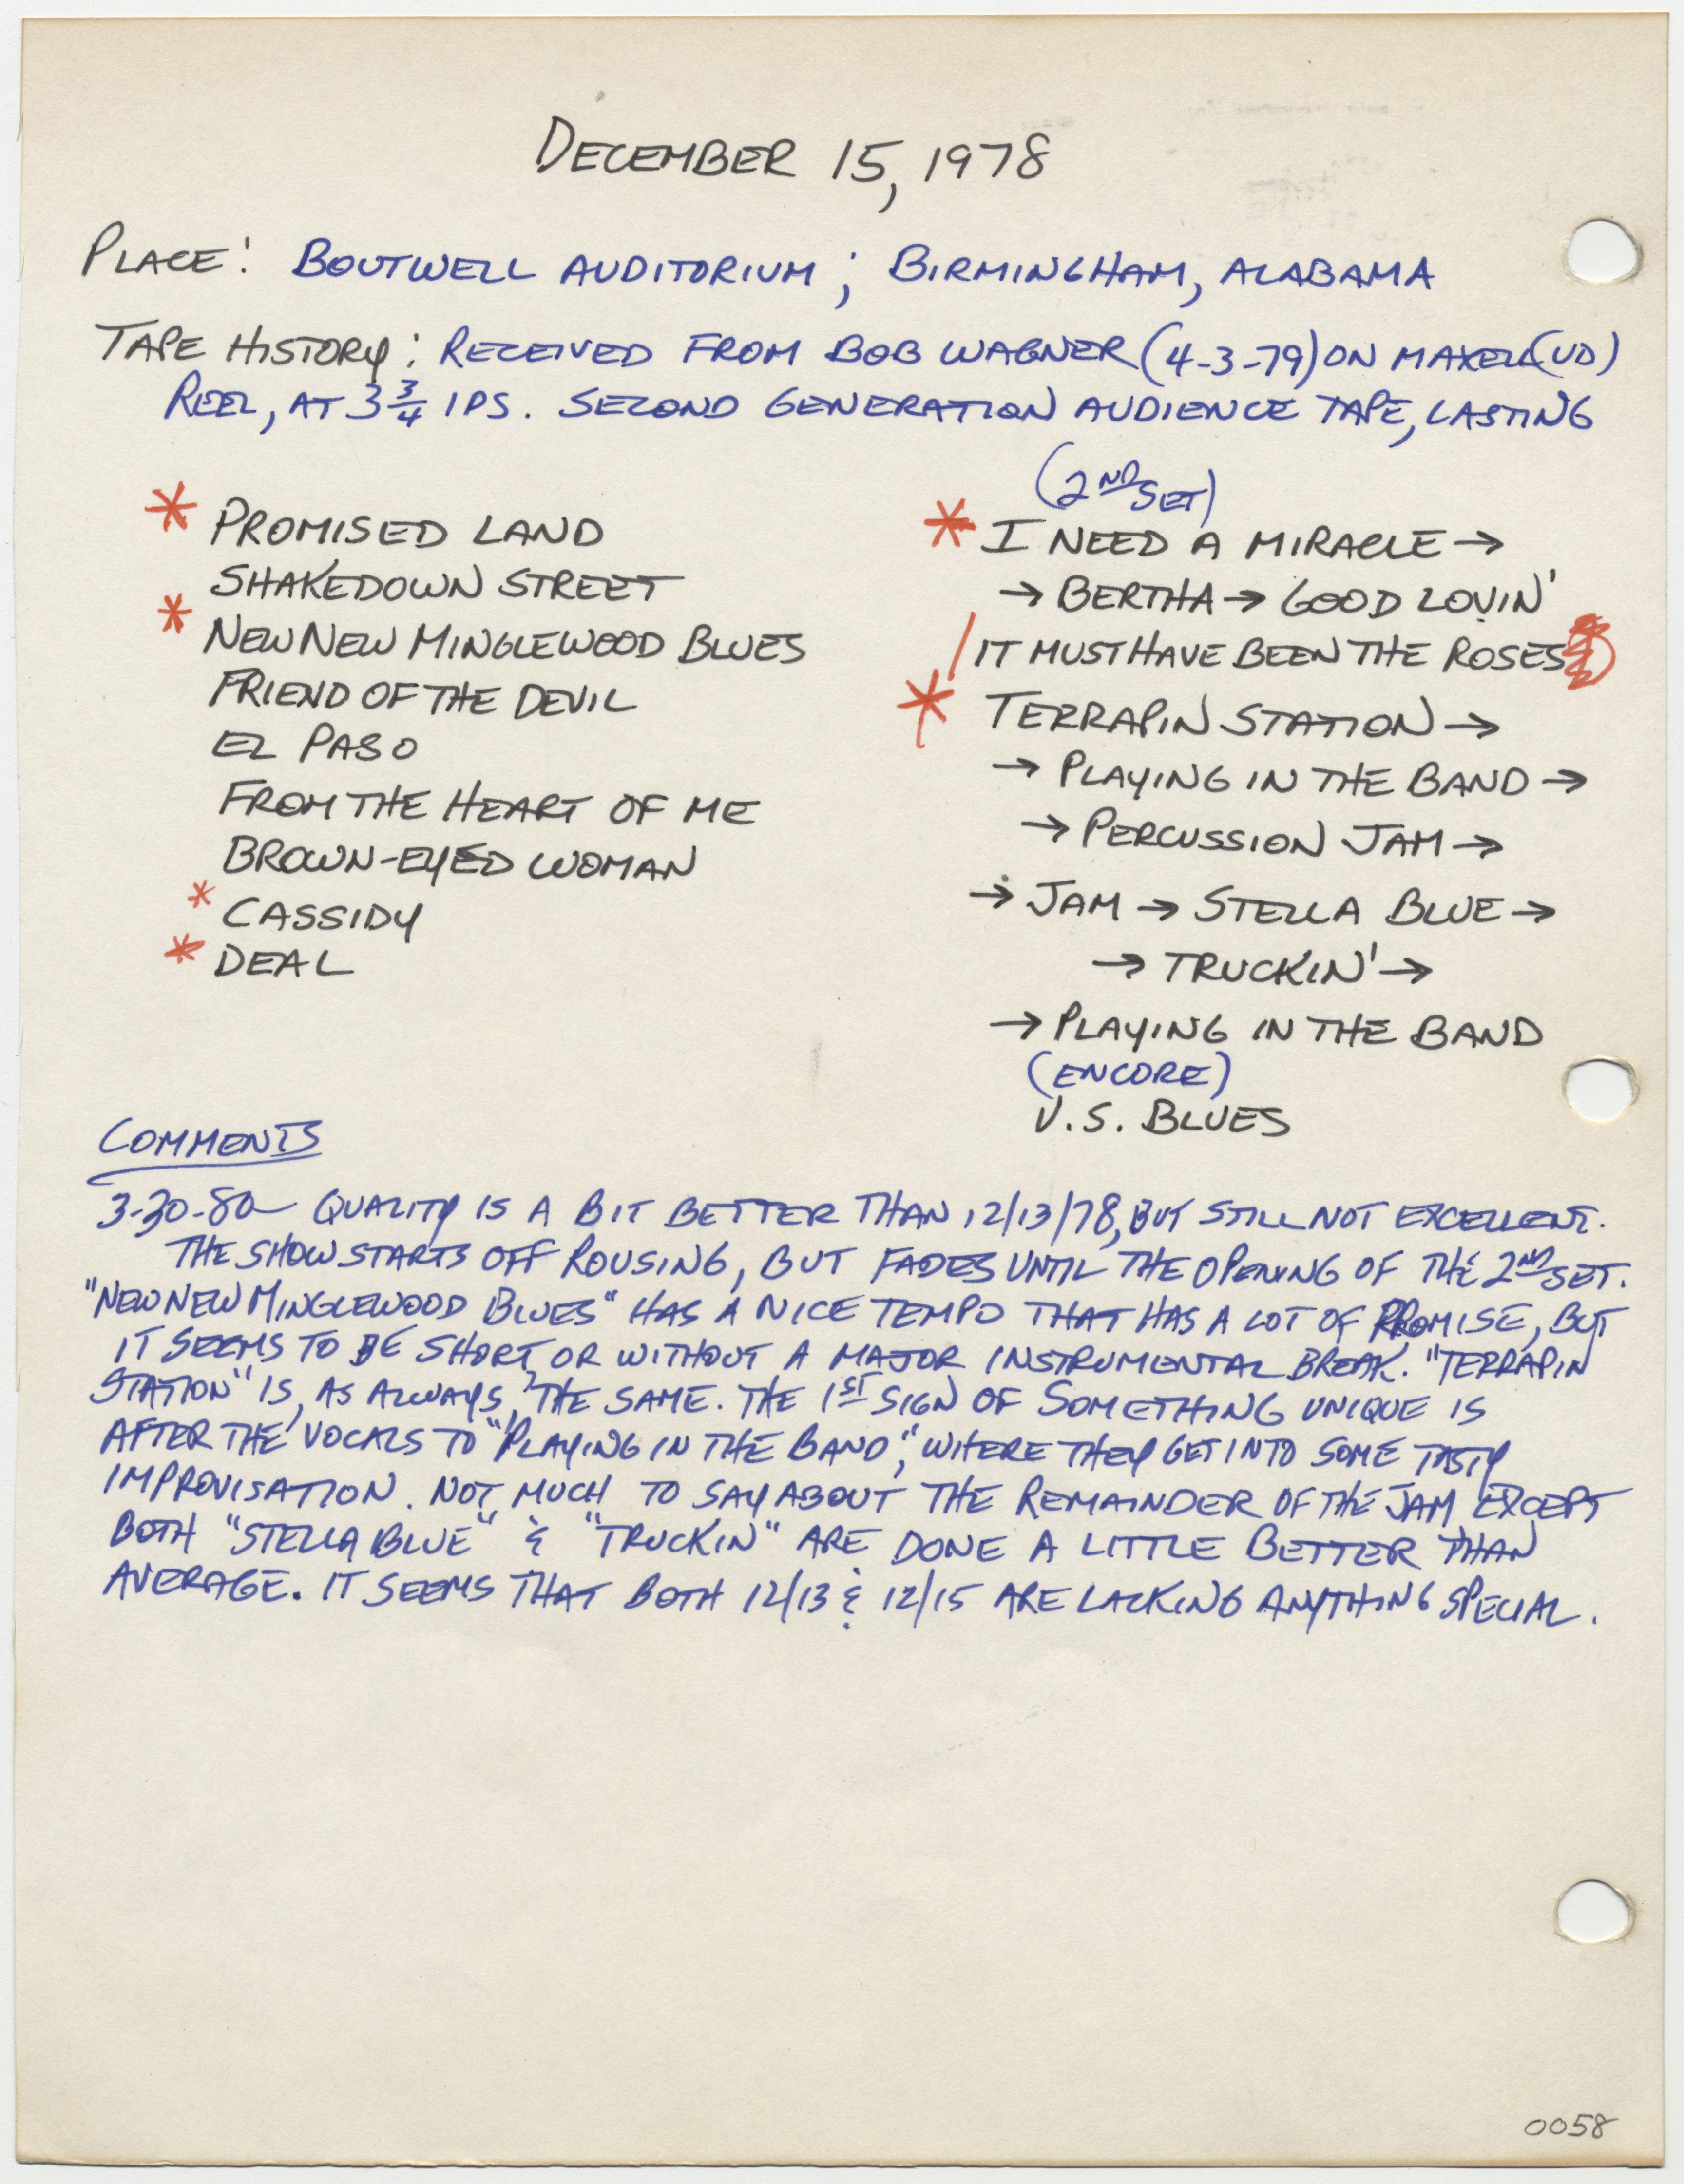 DECEMBER 15, 1978
PLACE: BOUTWELL AUDITORIUM; BIRMINGHAM, ALABAMA
TAPE HISTORY: RECEIVED FROM BOB WAGNER (4-3-79) ON MAXELL (UD)
REEL, AT 3 3/4 IPS. SECOND GENERATION AUDIENCE TAPE, LASTING
* PROMISED LAND
SHAKEDOWN STREET
* NEW NEW MINGLEWOOD BLUES
FRIEND OF THE DEVIL
EL PASO
FROM THE HEART OF ME
BROWN-EYED WOMAN
* CASSIDY
* DEAL
(2ND SET)
* I NEED A MIRACLE →
→ BERTHA → GOOD LOVIN'
IT MUST HAVE BEEN THE ROSES
* TERRAPIN STATION →
→ PLAYING IN THE BAND →
→ PERCUSSION JAM →
→ JAM → STELLA BLUE →
→ TRUCKIN' →
→ PLAYING IN THE BAND
(ENCORE)
U.S. BLUES
COMMENTS
3-30-80 — QUALITY IS A BIT BETTER THAN 12/13/78, BUT STILL NOT EXCELLENT.
THE SHOW STARTS OFF ROUSING, BUT FADES UNTIL THE OPENING OF THE 2ND SET.
"NEW NEW MINGLEWOOD BLUES" HAS A NICE TEMPO THAT HAS A LOT OF PROMISE, BUT
IT SEEMS TO BE SHORT, OR WITHOUT A MAJOR INSTRUMENTAL BREAK. "TERRAPIN
STATION" IS, AS ALWAYS, THE SAME. THE 1ST SIGN OF SOMETHING UNIQUE IS
AFTER THE VOCALS TO "PLAYING IN THE BAND", WHERE THEY GET INTO SOME TASTY
IMPROVISATION. NOT MUCH TO SAY ABOUT THE REMAINDER OF THE JAM EXCEPT
BOTH "STELLA BLUE" & "TRUCKIN" ARE DONE A LITTLE BETTER THAN
AVERAGE. IT SEEMS THAT BOTH 12/13 & 12/15 ARE LACKING ANYTHING SPECIAL.
0058